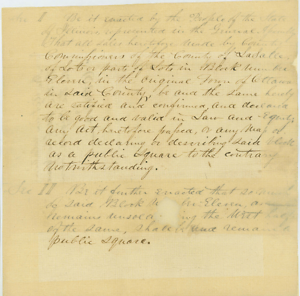 Sec I Be it enacted by the People of the State
of Illinois represented in the General
That all sales heretofore made by the
Commissioners of the County of LaSalle
of Lots or parts of Lots, in Block number
Eleven, in the original Town of Ottawa
in said County, be and the same hereby
are ratified and confirmed, and declared
to be good and valid in Law and Equity
any Act, heretofore passed, or any
record declaring or describing said Block
as a public Square to the contrary
notwithstanding.
Sec II Be it further enacted that so
of said Block Eleven, as
remains unsold the West
of the same, shall be and remain a
public Square.